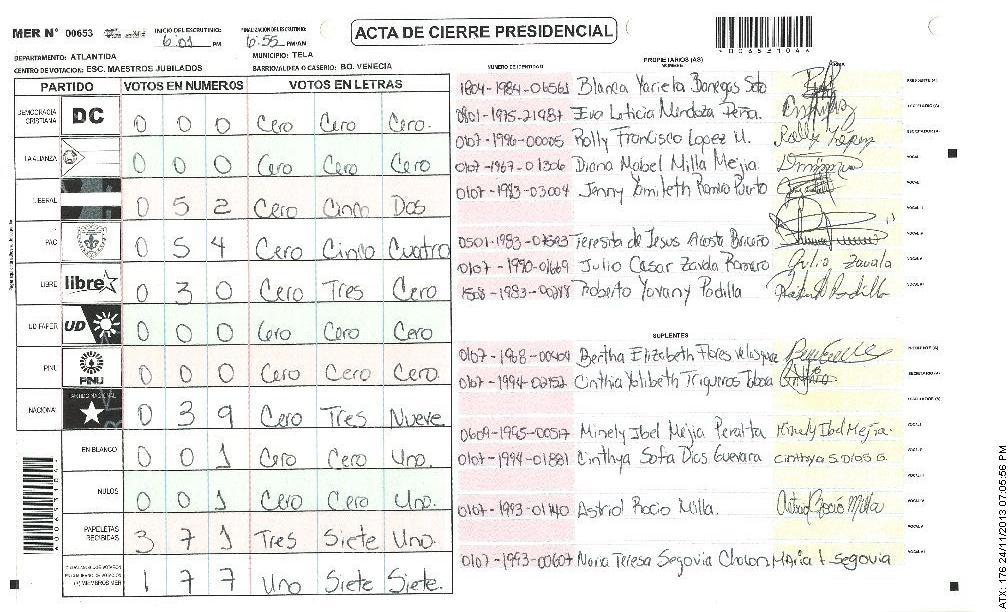 MER N° 00653
INICIO DEL ESCRUTINIO: 6:01 PM
FINALIZACION DEL ESCRUTINIO: 6:55 PM/AM
ACTA DE CIERRE PRESIDENCIAL
DEPARTAMENTO: ATLANTIDA
MUNICIPIO: TELA
CENTRO DE VOTACION: ESC. MAESTROS JUBILADOS
BARRIO/ALDEA O CASERIO: BO. VENECIA
PARTIDO VOTOS EN NUMEROS VOTOS EN LETRAS
DEMOCRACIA CRISTIANA DC 0 0 0 Cero Cero Cero.
LA ALIANZA 0 0 0 Cero Cero Cero
LIBERAL 0 5 2 Cero Cinco Dos
PAC 0 5 4 Cero Cinco Cuatro
LIBRE libre 0 3 0 Cero Tres Cero
UD FAPER UD 0 0 0 Cero Cero Cero
PINU PINU 0 0 0 Cero Cero Cero.
NACIONAL PARTIDO NACIONAL 0 3 9 Cero Tres Nueve
EN BLANCO 0 0 1 Cero Cero Uno.
NULOS 0 0 1 Cero Cero Uno.
PAPELETAS RECIBIDAS 3 7 1 Tres Siete Uno.
(*) MIEMBROS MER 1 7 7 Uno Siete Siete.
PROPIETARIOS (AS)
NUMERO DE IDENTIDAD NOMBRE FIRMA
1804-1984-06561 Blanca Yariela Banegas Soto PRESIDENTE (A)
0801-1975-21987 Eva Leticia Mendoza Peña. SECRETARIO (A)
0107-1996-00005 Rolly Francisco Lopez M. Rolly Lopez ESCRUTADOR (A)
0107-1967-01306 Diana Mabel Milla Mejia. VOCAL I
0107-1993-03004 Jenny Yamileth Romero Puerto VOCAL II
0501-1983-07593 Teresita de Jesus Acosta Briceño VOCAL IV
0107-1990-01669 Julio Cesar Zavala Romero Julio Zavala VOCAL V
1508-1983-00248 Roberto Yovany Padilla VOCAL VI
SUPLENTES
0107-1968-00404 Bertha Elizabeth Flores Velasquez PRESIDENTE (A)
0107-1994-02152 Cinthia Yolibeth Trigueros Taboa SECRETARIO (A)
ESCRUTADOR (A)
0609-1995-00517 Minely Ibel Mejia Peralta Minely Ibel Mejia. VOCAL I
0107-1994-01881 Cinthya Sofia Dios Guevara Cinthya S. Dios G. VOCAL II
0107-1993-01140 Astrid Rocio Milla. Astrid Rocio Milla VOCAL IV
VOCAL V
0107-1993-00607 Maria Teresa Segovia Chalon Maria t segovia VOCAL VI
ATX: 176 24/11/2013 07:05:56 PM